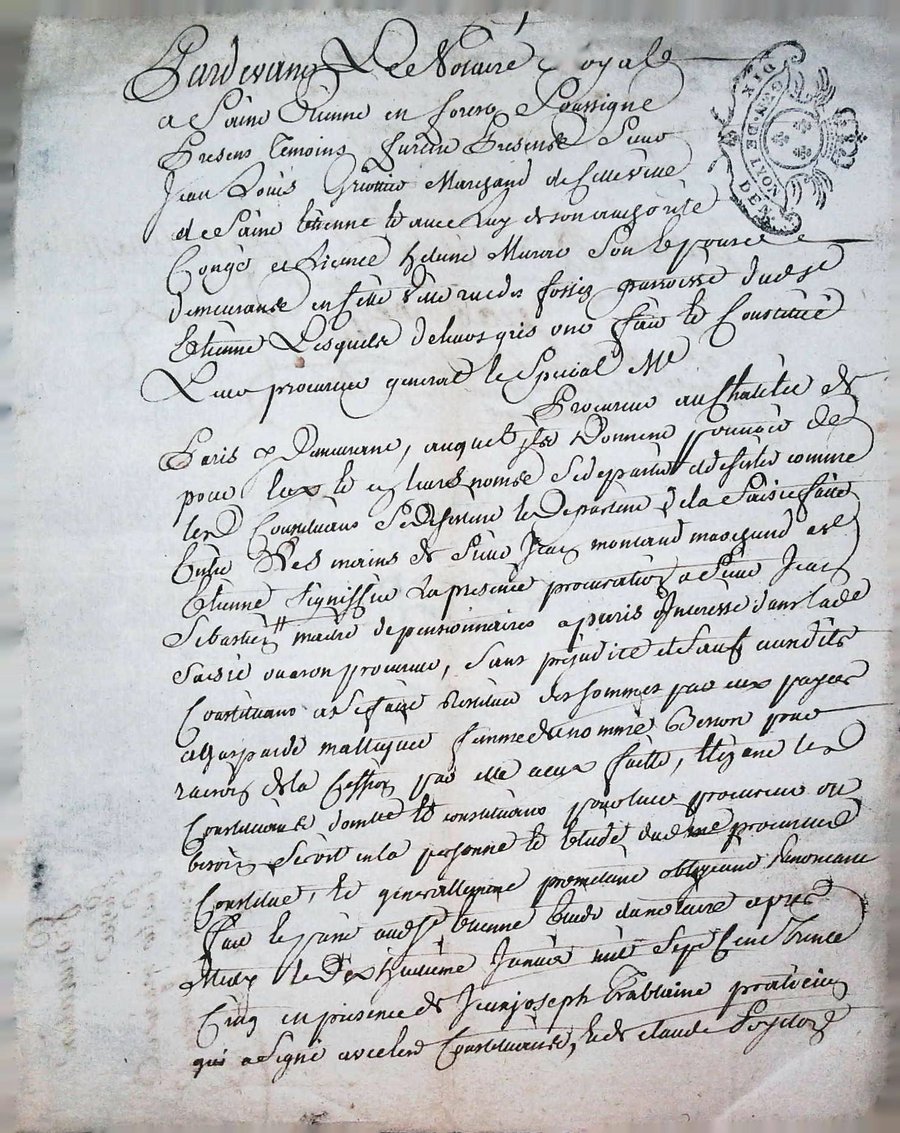 Pardevant Le Notaire Royal
a Saint Etienne en forest Soussigné
Presens Temoins furent Presens Sieur
Jean Louis Marchand de cette ville
de Saint Etienne et avec luy de son authorité
Congé et Licence Son Epouse
demeurants en cette ville rue des fossez parroisse dudst
Etienne Lesquels de leurs gris ont fait et Constitué
Leur procureur general et Special Me
Procureur au Chatelet de
Paris y Demeurant, auquel ils Donnent pouvoir de
pour Eux et en leurs noms Se departir et desister comme
les Constituans Se desistent et Departent de la Saisie faite
Entre les mains de Sieur Jean montaud marchand a st
Etienne Signiffier La presente procuration a Sieur Jean
Sebastien maitre de pensionnaires a paris Interessé dans lade
Saisie ou a son procureur, Sans préjudice et Sauf auxdits
Constituans a Se faire Restituer des Sommes par eux payées
a Gasparde femme de nommé Benson pour
raison de la Cession par elle a eux faitte, Elizant les
Constituants domicile et constituans pour leur procureur ou
besoin Seroit en la personne et Etude dudt me procureur
Constitué, Et generallement promettant obligeant Renonceant
Fait et passé audst Etienne Etude dud notaire apres
Midy le Dix Huitième Janvier mil Sept Cent Trente
Cinq en presence de Jean joseph praticien
qui a Signé avec lesd Constituants, et de claude
DIX
GEN. DE LYON
DEN.